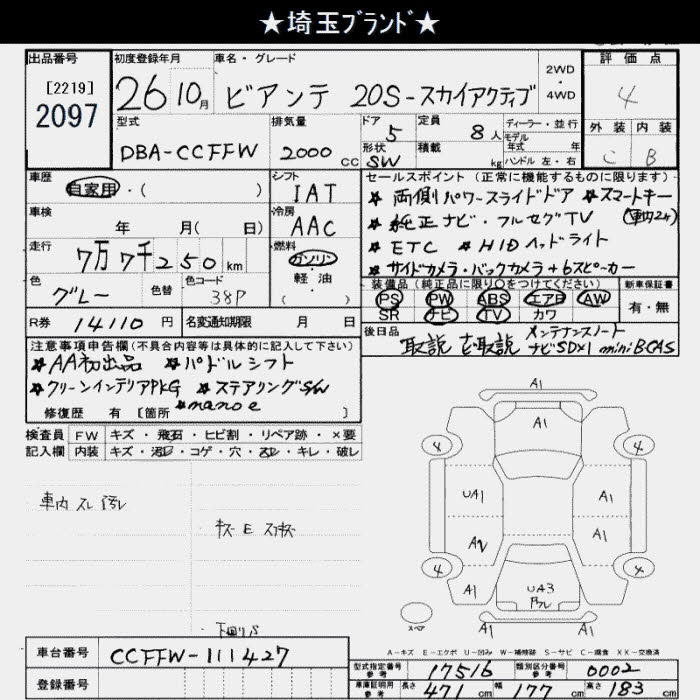 ★埼玉ブランド★
出品番号 初度登録年月 車名・グレード 2WD・4WD 評価点
[2219]
2097 26 10月 ビアンテ 20S-スカイアクティブ 4
型式 排気量 ドア 5 定員 8人 ディーラー・並行 外装 内装
モデル年式 年
DBA-CCFFW 2000cc 形状 SW 積載 kg ハンドル 左・右 C B
車歴 自家用・( ) シフト IAT
セールスポイント(正常に機能するものに限ります)
★両側パワースライドドア ★スマートキー
車検 年 月( 日) 冷房 AAC
★純正ナビ・フルセグTV
★ETC ★HIDヘッドライト
走行 7万7千250km 燃料 ガソリン 軽油 ( )
★サイドカメラ・バックカメラ+6スピーカー
色 グレー 色替 色コード 38P
装備品(純正品に限り○をつけてください) 新車保証書
PS PW ABS エアB AW 有・無
SR ナビ TV カワ
R券 14110円 名変通知期限 月 日
後日品 メンテナンスノート
取説 ナビ取説 ナビSD×1 miniBCAS
注意事項申告欄(不具合内容等は具体的に記入して下さい)
★AA初出品 ★パドルシフト
★クリーンインテリアPKG ★ステアリングSW
★nanoe
修復歴 有 [箇所 ]
検査員 FW キズ・飛石・ヒビ割・リペア跡・×要
記入欄 内装 キズ・汚レ・コゲ・穴・・キレ・破レ
車内 スレ 汚レ
キズ E スリキズ
下回りS
A1
A1
4 4
UA1 A1
A2 A1
4 4
A1 UA3 A1
A1 A1
スペア
A-キズ E-エクボ U-凹み W-補修跡 S-サビ C-腐食 XX-交換済
車台番号 CCFFW-111427
登録番号
型式指定番号 参考 17516 類別区分番号 参考 0002
車庫証明用 参考 長さ 471cm 幅 177cm 高さ 183cm